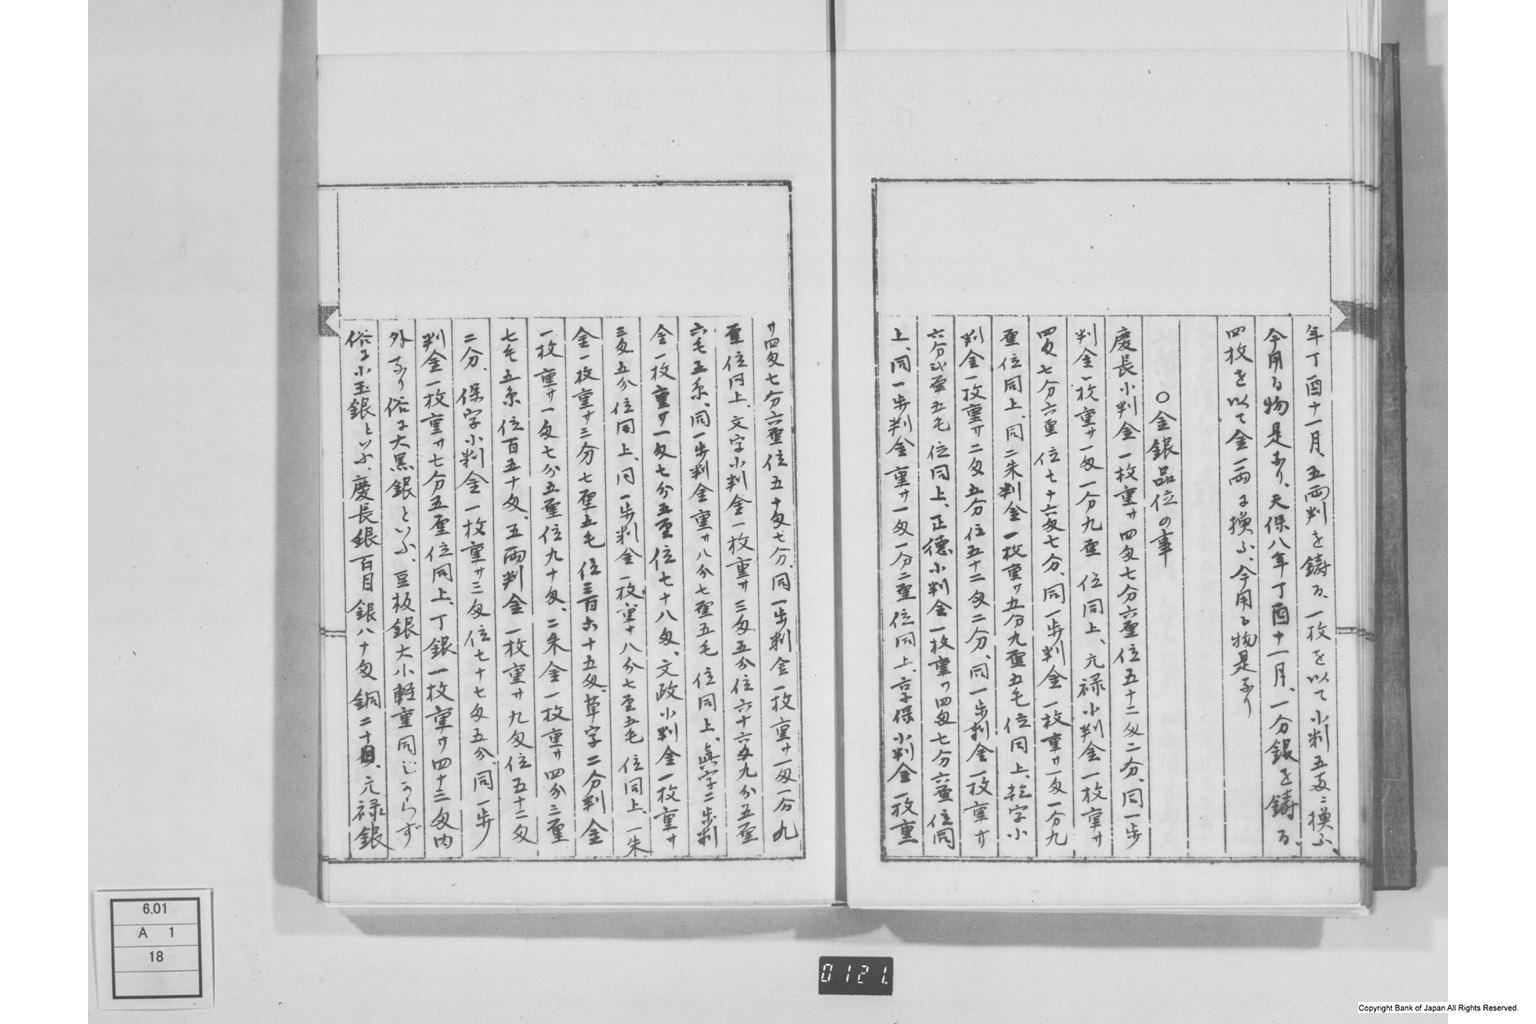 年丁酉十一月五両判を鋳る、一枚を以て小判五両ニ換ふ、
今用る物是あり、天保八年丁酉十一月、一分銀を鋳る、
四枚を以て金一両に換ふ、今用る物是あり
○金銀品位の事
慶長小判金一枚重サ四匁七分六厘位五十二匁二分、同一歩
判金一枚重サ一匁一分九厘位同上、元禄小判金一枚重サ
四匁七分六厘位七十六匁七分、同一歩判金一枚重サ一匁一分九
厘位同上、同二朱判金一枚重サ五分九厘五毛位同上、乾字小
判金一枚重サ二匁五分位五十二匁二分、同一歩判金一枚重サ
六分弐厘五毛位同上、正徳小判金一枚重サ四匁七分六厘位同
上、同一歩判金重サ一匁一分二厘位同上、享保小判金一枚重
サ四匁七分六厘位五十匁七分、同一歩判金一枚重サ一匁一分九
厘位同上、文字小判金一枚重サ三匁五分位六十六匁九分五厘
六毛五糸、同一歩判金重サ八分七厘五毛位同上、真字二歩判
金一枚重サ一匁七分五厘位七十八匁、文政小判金一枚重サ
三匁五分位同上、同一歩判金一枚重サ八分七厘五毛位同上、一朱
金一枚重サ三分七厘五毛位三百六十五匁、草字二分判金
一枚重サ一匁七分五厘位九十匁、二朱金一枚重サ四分三厘
七毛五糸位百五十匁、五両判金一枚重サ九匁位五十二匁
二分、保字小判金一枚重サ三匁位七十七匁五分、同一歩
判金一枚重サ七分五厘位同上、丁銀一枚重サ四十三匁内
外あり俗に大黒銀といふ、豆板銀大小軽重同じからず
俗に小玉銀といふ、慶長銀百目銀八十匁銅二十目、元禄銀
6.01
A 1
18
0121.
Copyright Bank of Japan All Rights Reserved.